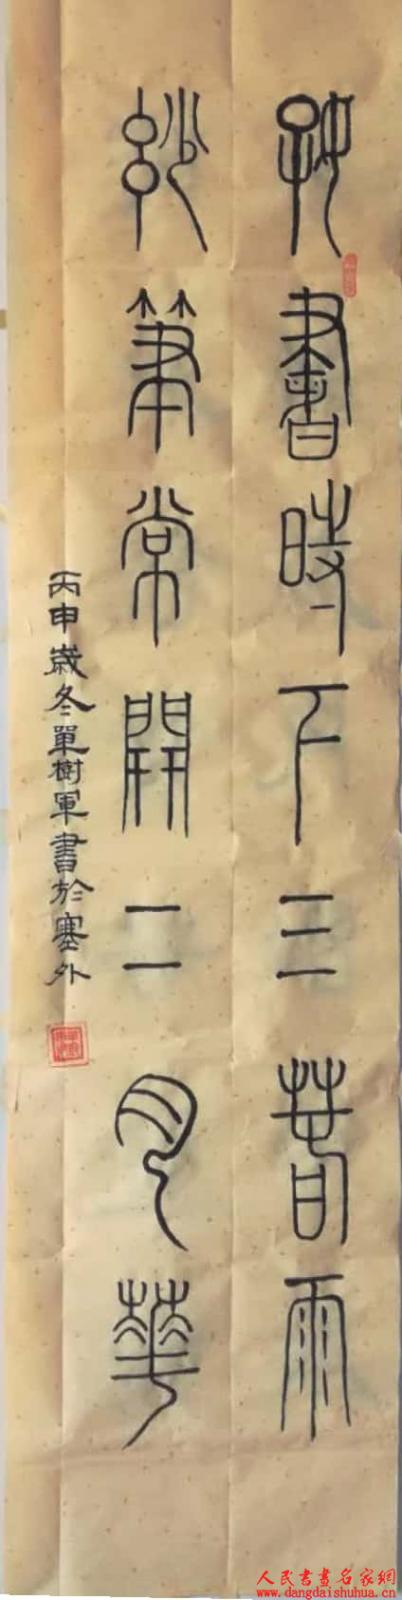 好書時下三春雨
妙筆常開二月華
丙申歲冬單樹軍書於塞外
人民書畫名家網
www.dangdaishuhua.cn